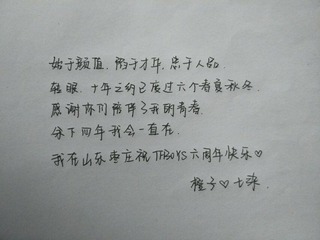 始于颜值，陷于才华，忠于人品
转眼，十年之约已度过六个春夏秋冬
感谢你们陪伴了我的青春
余下四年我会一直在
我在山东枣庄祝TFBOYS六周年快乐♡
橙子♡七